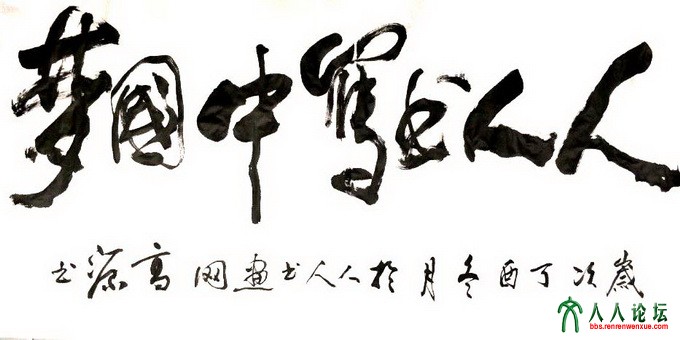 人人书寫中國夢
歲次丁酉冬月於人人书畫网高源书
人人论坛
bbs.renrenwenxue.com